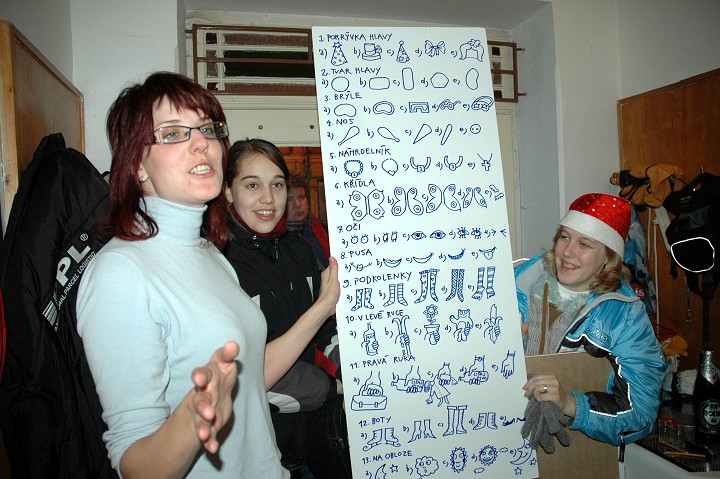 1. POKRÝVKA HLAVY
a) b) c) d) e)
2. TVAR HLAVY
a) b) c) d) e)
3. BRÝLE
a) b) c) d) e)
4. NOS
a) b) c) d) e)
5. NÁHRDELNÍK
a) b) c) d) e)
6. KŘÍDLA
a) b) c) d) e)
7. OČI
a) b) c) d) e)
8. PUSA
a) b) c) d) e)
9. PODKOLENKY
a) b) c) d) e)
10. V LEVÉ RUCE
a) b) c) d) e)
11. PRAVÁ RUKA
a) b) c) d) e)
12. BOTY
a) b) c) d) e)
13. NA OBLOZE
a) b) c) d) e)
PL